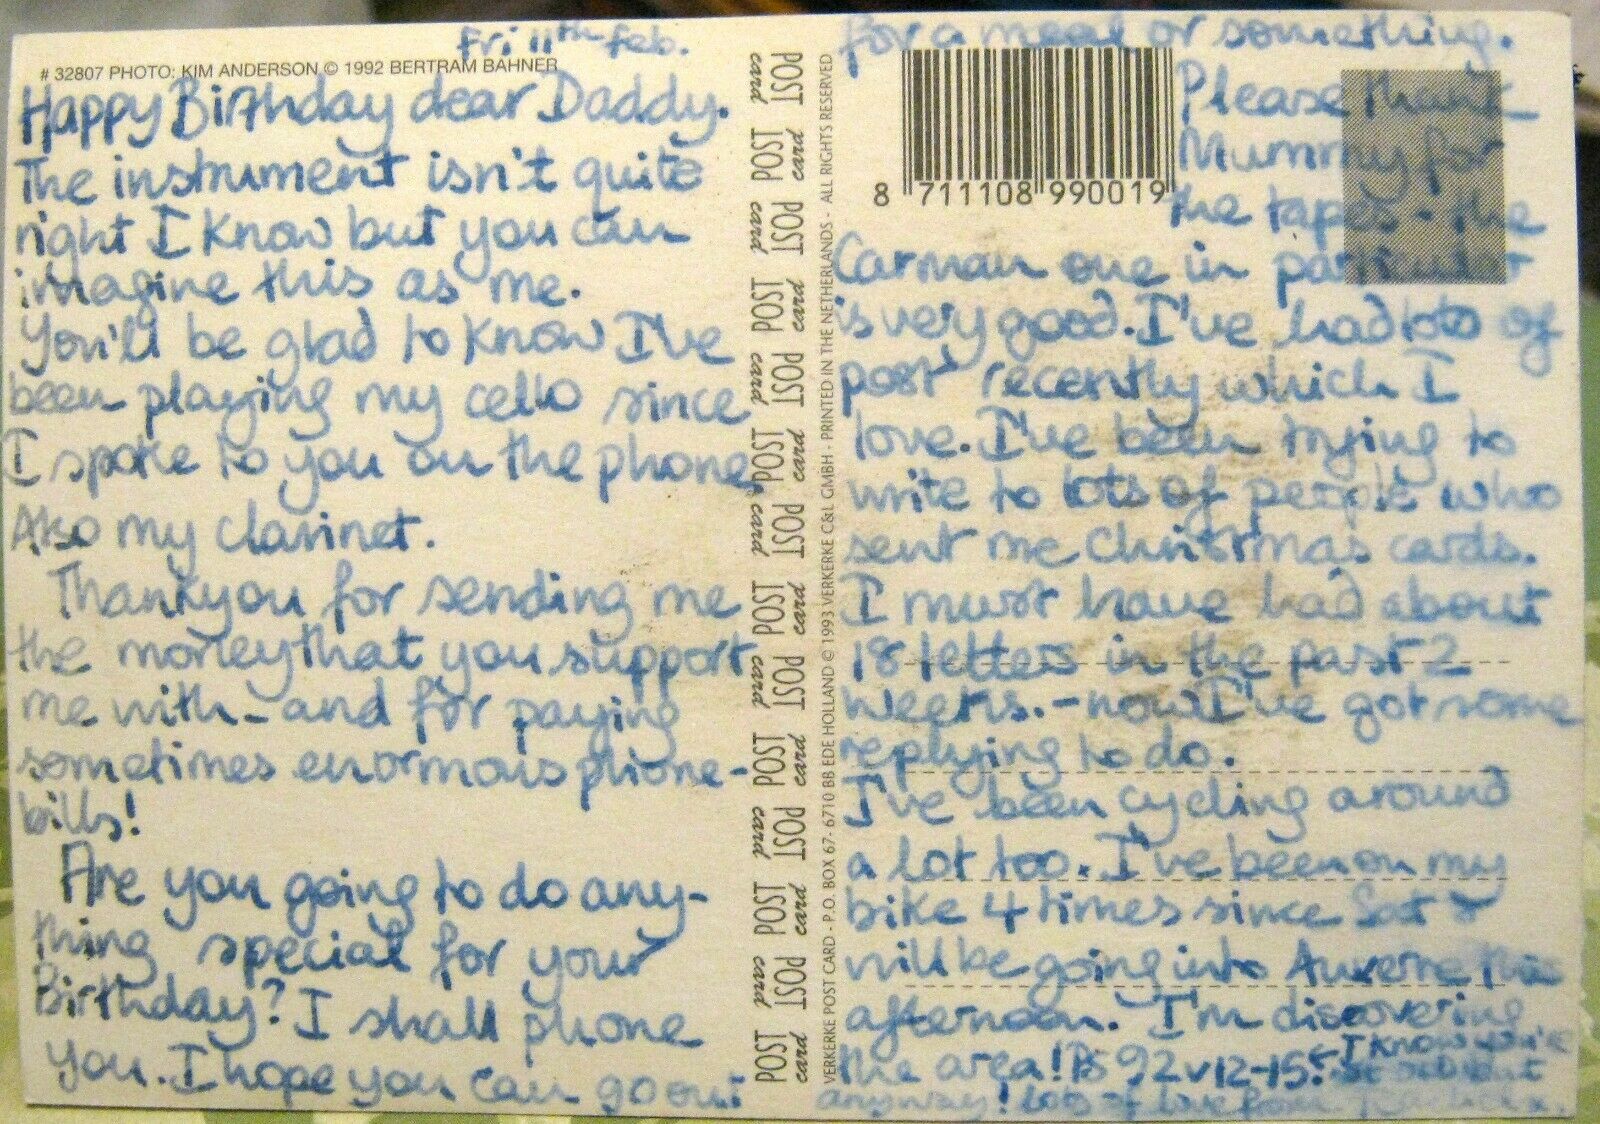 Fri 11th Feb.
# 32807 PHOTO: KIM ANDERSON © 1992 BERTRAM BAHNER
Happy Birthday dear Daddy.
The instrument isn't quite
right I know but you can
imagine this as me.
You'll be glad to know I've
been playing my cello since
I spoke to you on the phone.
Also my clarinet.
Thankyou for sending me
the money that you support
me with - and for paying
sometimes enormous phone-
bills!
Are you going to do any-
thing special for your
Birthday? I shall phone
you. I hope you can go out
POST card POST card POST card POST card POST card POST card POST card POST card POST card POST card POST card POST card POST card POST card
VERKERKE POST CARD - P.O. BOX 67- 6710 BB EDE HOLLAND © 1993 VERKERKE C&L GMBH - PRINTED IN THE NETHERLANDS - ALL RIGHTS RESERVED
for a meal or something.
8 711108 990019
Please thank
Mummy for
the tapes - the
Carman one in particular
is very good. I've had lots of
post recently which I
love. I've been trying to
write to lots of people who
sent me Christmas cards.
I must have had about
18 letters in the past 2
weeks. - now I've got some
replying to do.
I've been cycling around
a lot too. I've been on my
bike 4 times since Sat &
will be going into Auxerre this
afternoon. I'm discovering
the area! Ps 92 v 12-15. I know you're
not old but
anyway! lots of love from